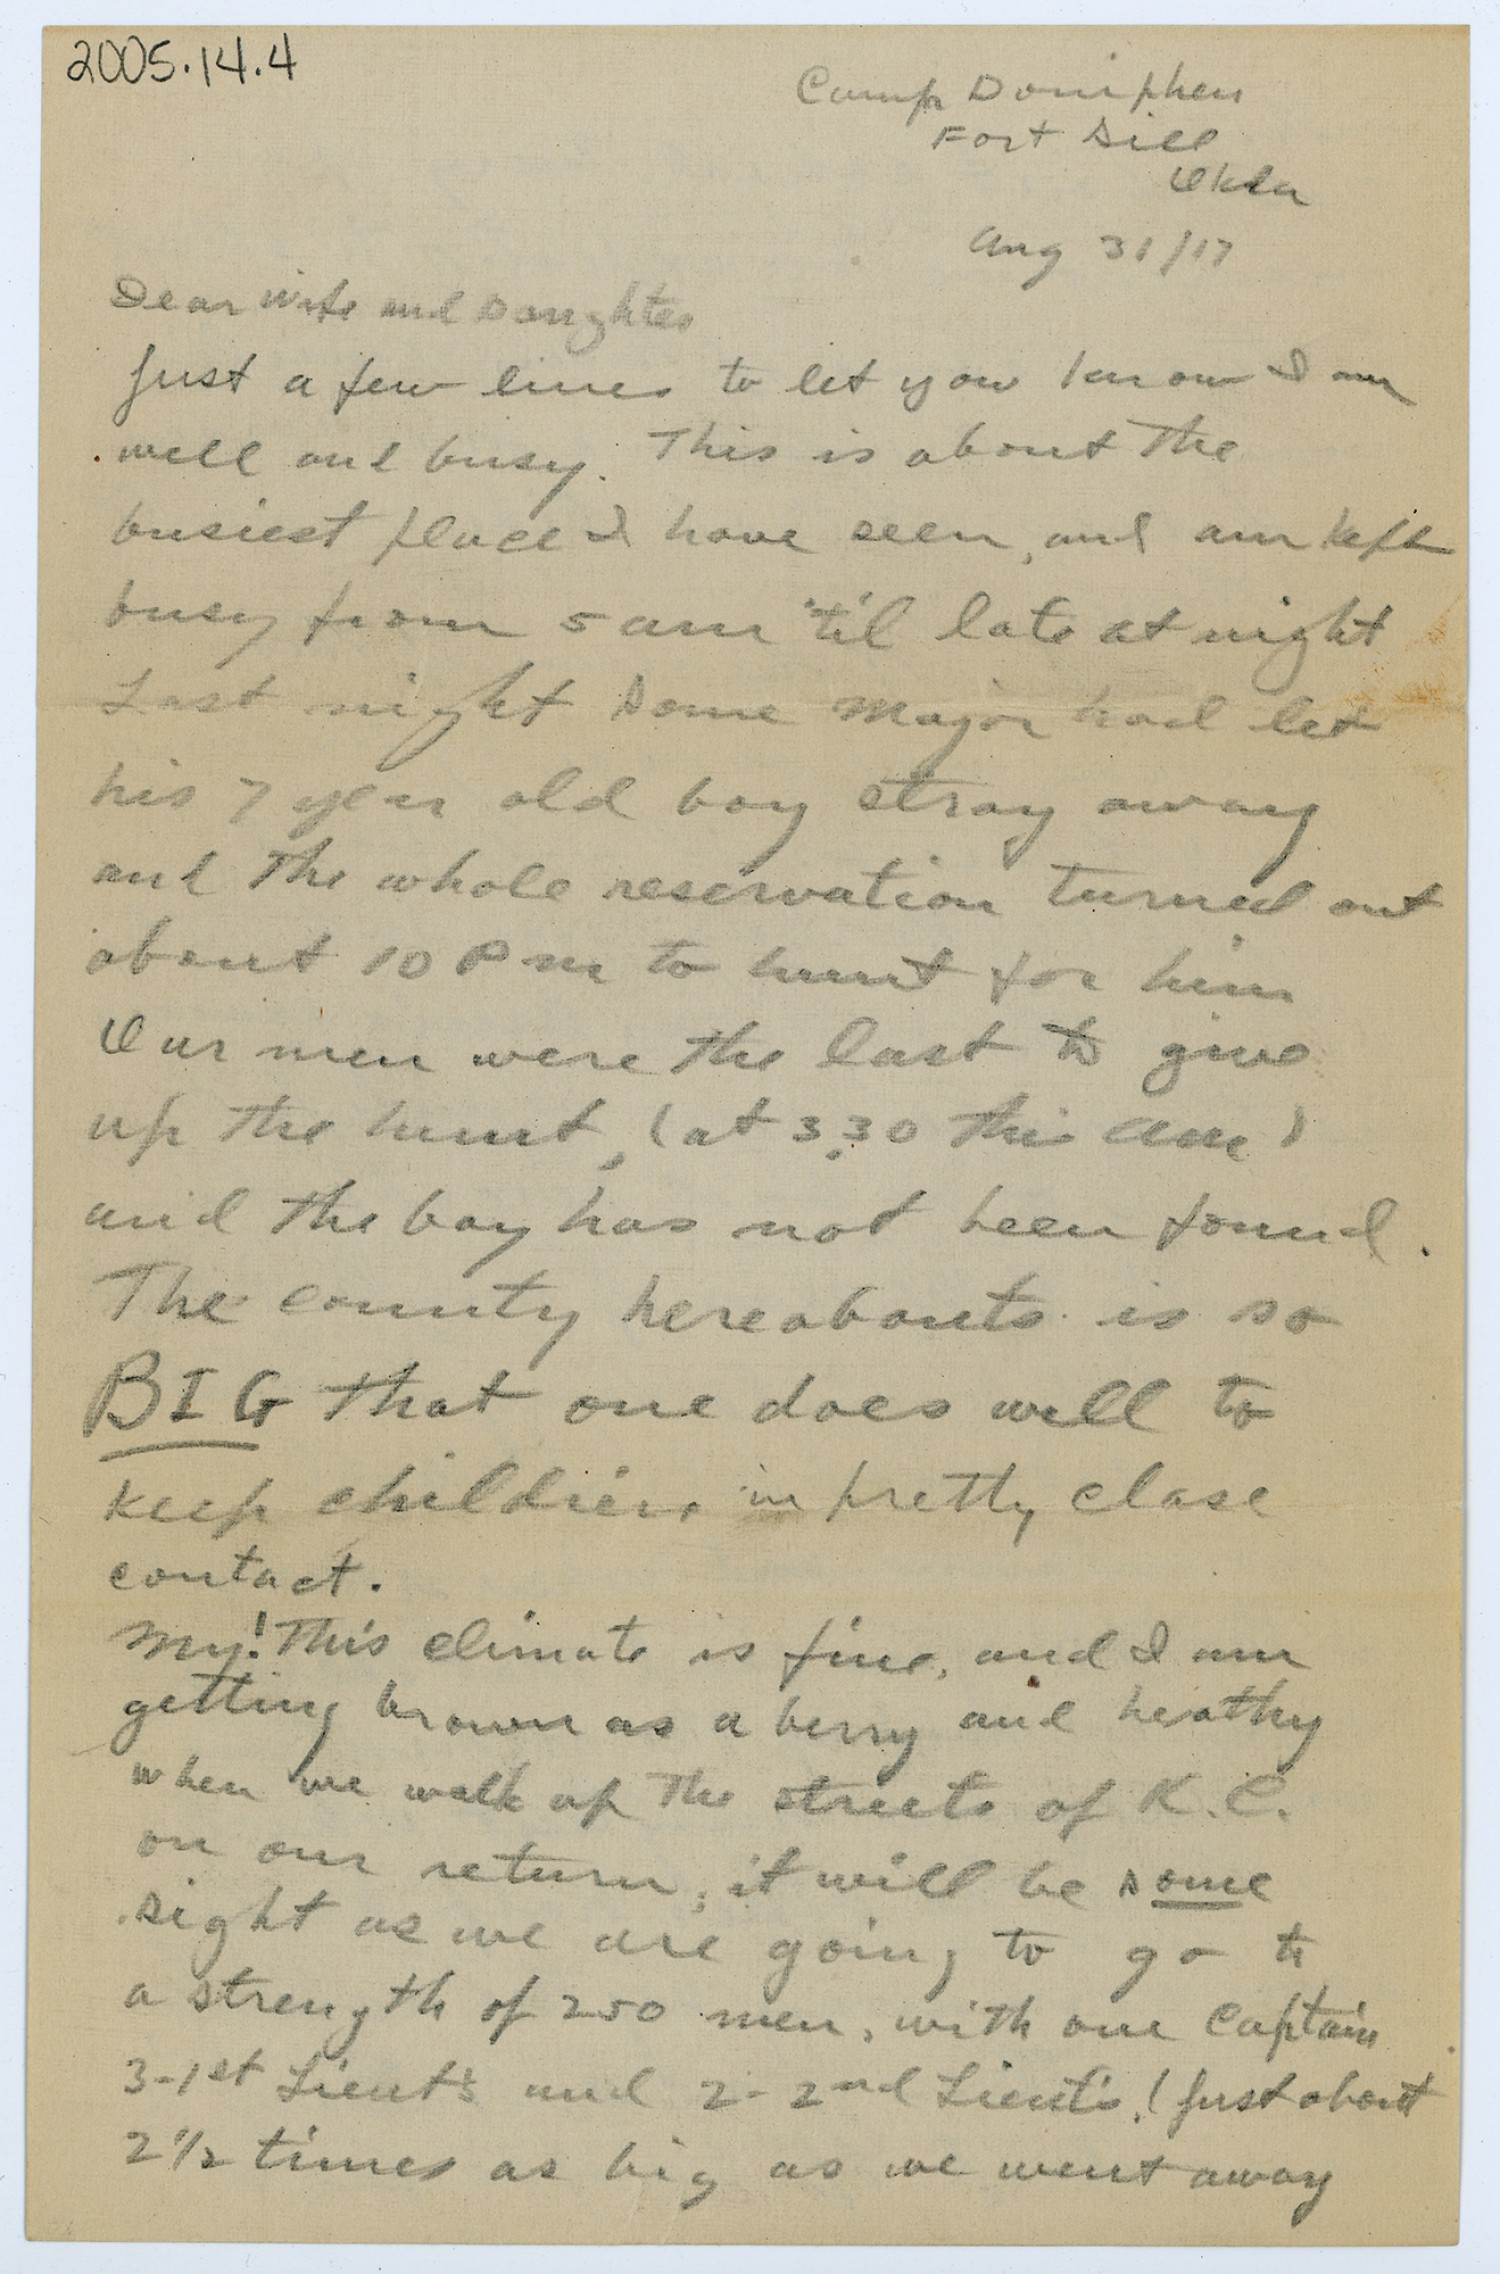 2005.14.4
Camp Doniphan
Fort Sill
Okla
Aug 31/17
Dear Wife and Daughter
Just a few lines to let you know I am
well and busy. This is about the
busiest place I have seen, and am kept
busy from 5 am 'til late at night
Last night some Major had let
his 7 year old boy stray away
and the whole reservation turned out
about 10 Pm to hunt for him
Our men were the last to give
up the hunt, (at 3.30 this am)
and the boy has not been found.
The county hereabouts is so
BIG that one does well to
keep children in pretty close
contact.
My! This climate is fine, and I am
getting brown as a berry and heathy
when we walk up the streets of K.C.
on our return, it will be some
sight as we are going to go to
a strength of 250 men, with one Captain
3-1st Lieut's and 2-2nd Lieut's, (just about
2 1/2 times as big as we went away